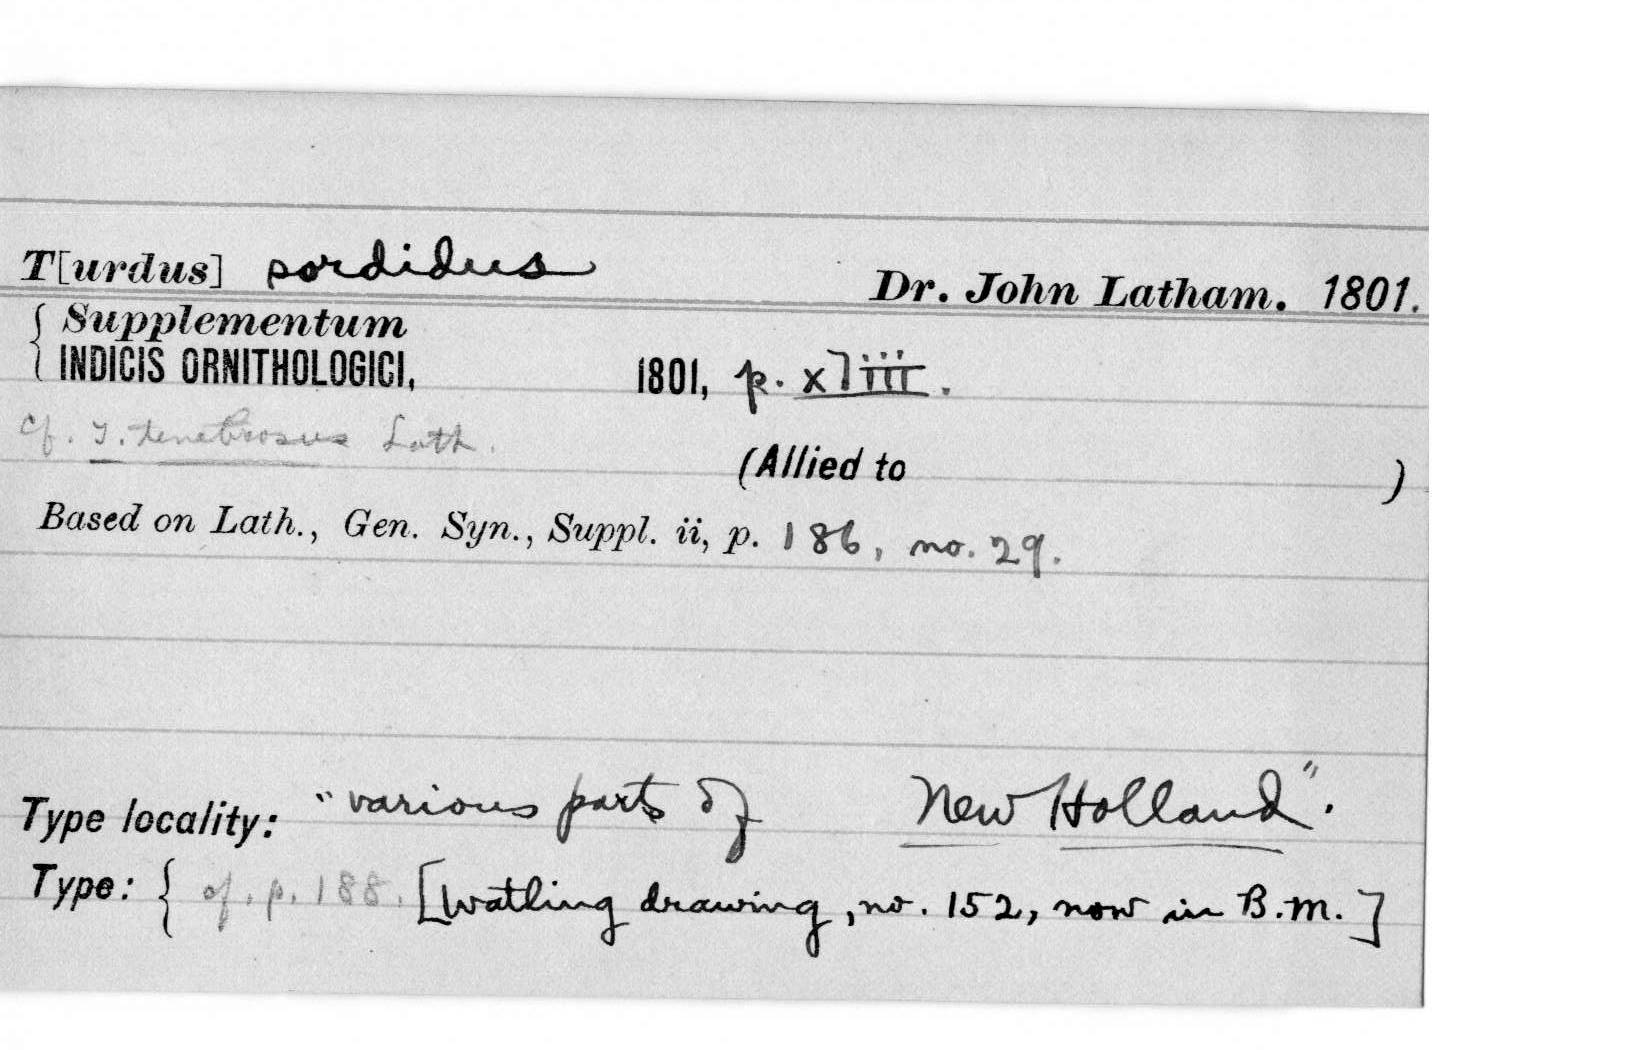 T[urdus] sordidus Dr. John Latham. 1801.
{ Supplementum
INDICIS ORNITHOLOGICI, 1801, p. xliii.
cf. T. tenebrosus Lath.
(Allied to )
Based on Lath., Gen. Syn., Suppl. ii, p. 186, no. 29.
Type locality: "various parts of New Holland".
Type: { cf. p. 188. [Watling drawing, no. 152, now in B.M.]